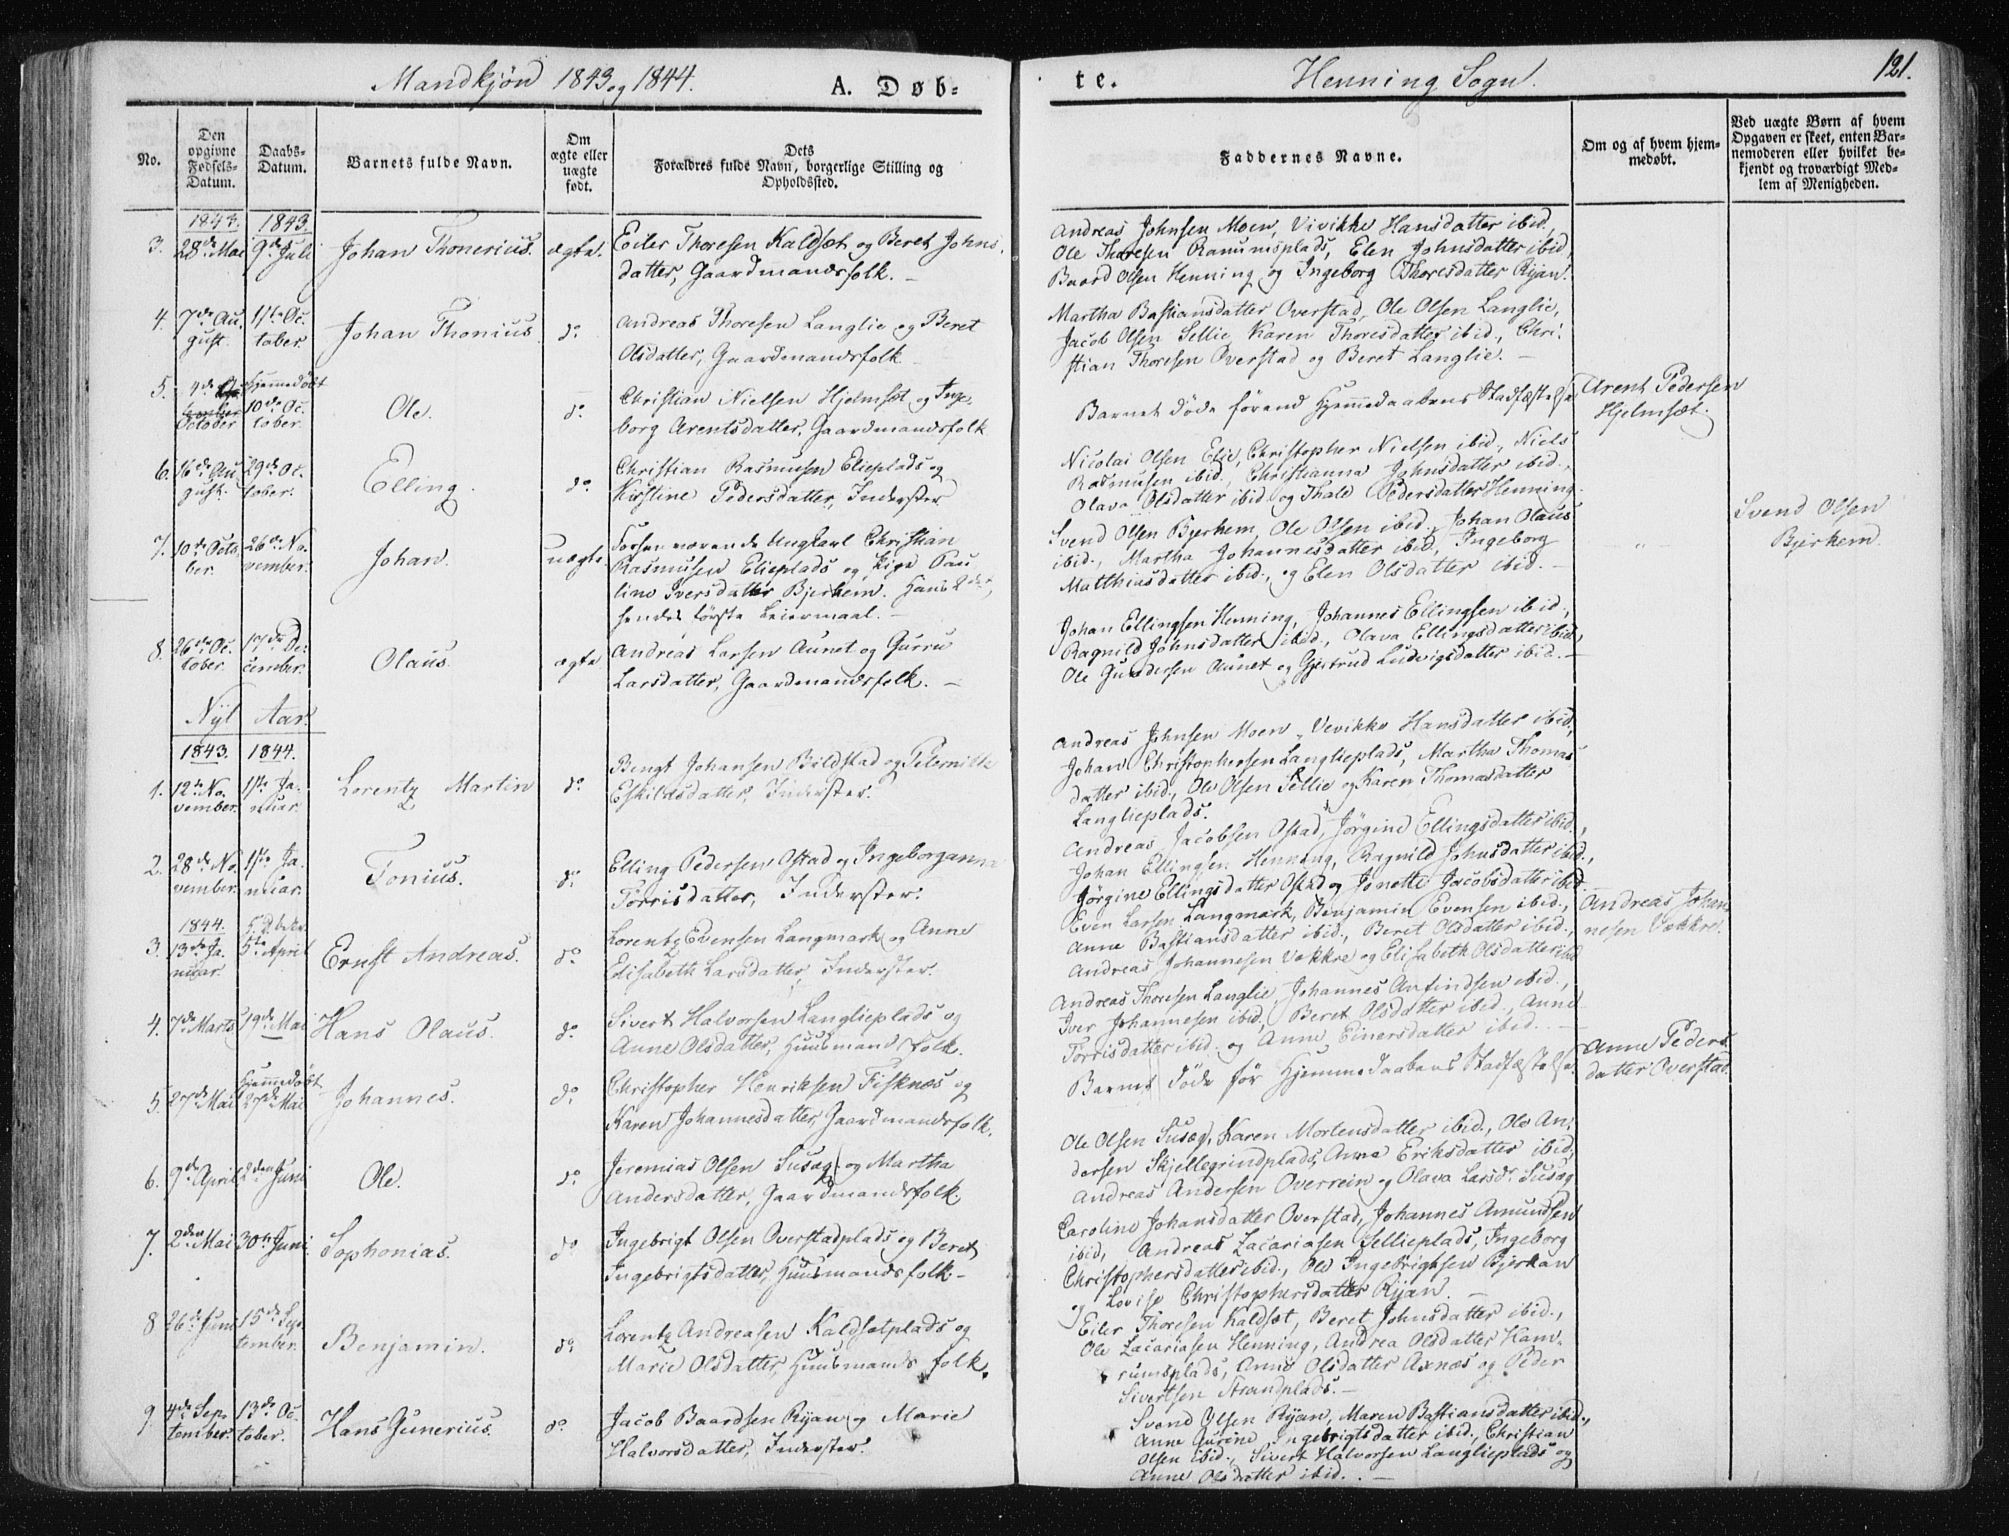 Mandkjøn 1843 og 1844.
A. Døb-
te.
Henning Sogn.
121.
No.
Den opgivne Fødsels-Datum.
Daabs-Datum.
Barnets fulde Navn.
Om ægte eller uægte født.
Dets
Forældres fulde Navn, borgerlige Stilling og
Opholdssted.
Faddernes Navne.
Om og af hvem hjem-
medøbt.
Ved uægte Børn af hvem
Opgaven er skeet, enten Bar-
nemoderen eller hvilket be-
kjendt og troværdigt Med-
lem af Menigheden.
1843. 1843.
3. 28de Mai 9de Juli Johan Thonerius. ægte. Eiler Thoresen Kaldsæt og Beret Johns-
datter, Gaardmandsfolk. –
Andreas Johnsen Moen, Vivikke Hansdatter ibid.,
Ole Thoresen Ramumsplads, Elen Johnsdatter ibid,
Baard Olsen Henning og Ingeborg Thoresdatter Ryan.
4. 7de Au- 1ste Oc-
gust. tober. Johan Thonius. do Andreas Thoresen Langlie og Beret
Olsdatter, Gaardmandsfolk
Martha Bastiansdatter Overstad, Ole Olsen Langlie,
Jacob Olsen Sellie, Karen Thoresdatter ibid., Chri-
stian Thoresen Overstad og Beret Langlie. –
5. 4de Hjemmedøbt
October 10de Oc-
tober. Ole. do Christian Nielsen Hjelmsæt og Inge-
borg Arentsdatter, Gaardmandsfolk
Barnet døde førend Hjemmedaabens Stadfæstelse
Arent Pedersen
Hjelmsæt.
6. 16de Au- 29de Oc-
gust. tober. Elling. do Christian Rasmusen Elieplads og
Kirstine Pedersdatter, Inderster
Nicolai Olsen Elie, Christopher Nielsen ibid., Niels
Rasmusen ibid., Christianna Johnsdatter ibid.,
Olava Olsdatter ibid. og Thale Pedersdatter Henning.
7. 10de Octo- 26de No-
ber. vember. Johan. uægte. Forhenværende Ungkarl Christian
Rasmusen Elieplads og Pige Pau-
line Iversdatter Bjerkem. Hans 2det,
hendes første Leiermaal. –
Svend Olsen Bjerkem, Ole Olsen ibid., Johan Olaus
ibid., Martha Johannesdatter ibid, Ingeborg
Matthiasdatter ibid., og Elen Olsdatter ibid. –
Svend Olsen
Bjerkem.
8. 26de Oc- 17de De-
tober. cember. Olaus. ægte Andreas Larsen Aunet og Gurru
Larsdatter, Gaardmandsfolk. –
Johan Ellingsen Henning, Johannes Ellingsen ibid.,
Ragnild Johnsdatter ibid., Olava Ellingsdatter ibid,
Ole Gundersen Aunet og Gjertrud Ludvigsdatter ibid. –
Nyt Aar.
1843. 1844.
1. 12te No- 1ste Ja-
vember. nuar. Lorentz Martin do Bengt Johansen Bildstad og Peternille
Eskildsdatter, Inderster.
Andreas Johnsen Moen, Vevikke Hansdatter ibid,
Johan Christophersen Langlieplads, Martha Thomas-
datter ibid., Ole Olsen Sellie og Karen Thomasdatter
Langlieplads.
2. 28de No- 1ste Ja-
vember. nuar. Tonius. do Elling Pedersen Ostad og Ingeborganna
Torrisdatter, Inderster.
Andreas Jacobsen Ostad, Jørgine Ellingsdatter ibid.,
Johan Ellingsen Henning, Ragnild Johnsdatter ibid.,
Jørgine Ellingsdatter Ostad og Jonette Jacobsdatter ibid.
1844.
3. 13de Ja- 5te April
nuar. Ernst Andreas. do Lorentz Evensen Langmark og Anne
Elisabeth Larsdatter, Inderster.
Even Larsen Langmark, Benjamin Evensen ibid.,
Anne Bastiansdatter ibid., Beret Olsdatter ibid.,
Andreas Johannesen Vekkre og Elisabeth Olsdatter ibid
Andreas Johan-
nesen Vekkre.
4. 7de Marts 19de Mai Hans Olaus. do Sivert Halvorsen Langlieplads og
Anne Olsdatter, Huusmand Folk.
Andreas Thoresen Langlie, Johannes Arfindsen ibid.,
Iver Johannesen ibid, Beret Olsdatter ibid., Anne
Torrisdatter ibid. og Anne Einersdatter ibid. –
5. 27de Mai Hjemmedøbt
27de Mai Johannes. do Christopher Henriksen Fisknæs og
Karen Johannesdatter, Gaardmandsfolk.
Barnet døde før Hjemmedaabens Stadfæstelse.
Anne Peders-
datter Overstad.
6. 9de April 2den Juni Ole. do Jeremias Olsen Susæg og Martha
Andersdatter, Gaardmandsfolk.
Ole Olsen Susæg, Karen Mortensdatter ibid., Ole An-
dersen Skjellegrindplads, Anne Eriksdatter ibid,
Andreas Andersen Overrein og Olava Larsdr Susæg
7. 2den Mai 30te Juni. Sophonias. do Ingebrigt Olsen Overstadplads og Beret
Ingebrigtsdatter, Huusmandsfolk –
Caroline Johansdatter Overstad, Johannes Amundsen
ibid, Andreas Zacariasen Sellieplads, Ingeborg
Christophersdatter ibid., Ole Ingebrigtsen Bjerkan
og Lovise Christophersdatter Ryan. –
8 26de Juni 15de Sep-
tember. Benjamin. do Lorentz Andreasen Kaldsetplads og
Marie Olsdatter, Huusmands folk.
Eiler Thoresen Kaldsæt, Beret Johnsdatter ibid.,
Ole Zacariasen Henning, Andrea Olsdatter Ram-
rumsplads, Anne Olsdatter Axnæs og Peder
Sivertsen Strandplads. –
9. 4de Sep- 13de Oc-
tember. tober. Hans Gunerius. do Jacob Baardsen Ryan og Marie
Halvorsdatter, Inderster.
Svend Olsen Ryan, Maren Bastiansdatter ibid.,
Anne Gurine Ingebrigtsdatter ibid., Christian
Olsen ibid., Sivert Halvorsen Langlieplads og
Anne Olsdatter ibid. –